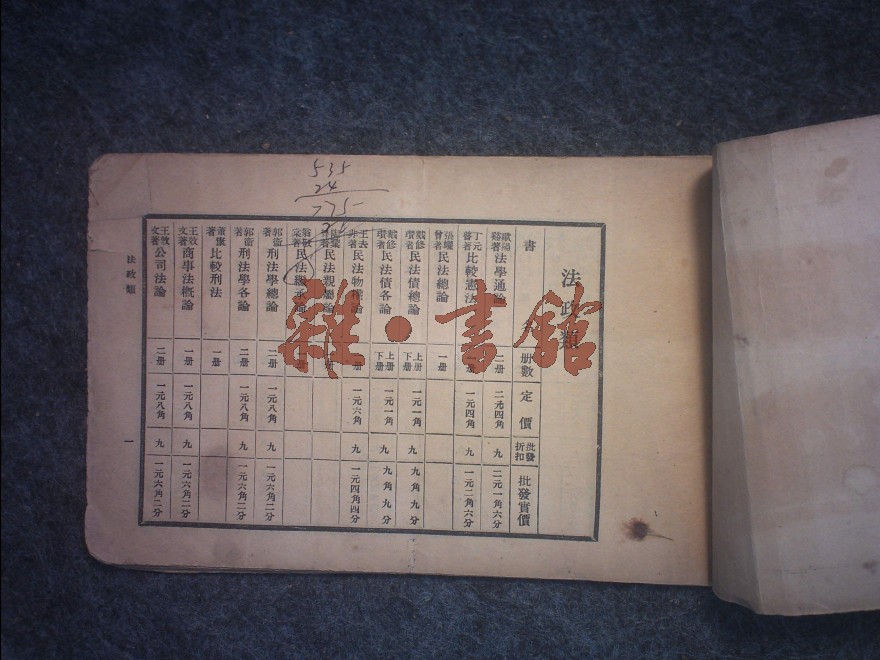 535
24
775
法政類
書 册數 定價 批發折扣 批發實價
歐陽谿著 法學通論 二册 二元四角 九 二元一角六分
丁元普著 比較憲法 一元四角 九 一元二角六分
張曜曾著 民法總論 一册
戴修瓚著 民法債總論 上册 下册 一元一角 九 九角九分
戴修瓚著 民法債各論 上册 下册 一元一角 九 九角九分
王去非著 民法物權論 册 一元六角 九 一元四角四分
民法親屬論
民法繼承論
郭衛著 刑法學總論 二册 一元八角 九 一元六角二分
郭衛著 刑法學各論 二册 一元八角 九 一元六角二分
著 比較刑法 一册
王效文著 商事法概論 一册 一元八角 九 一元六角二分
王效文著 公司法論 二册 一元八角 九 一元六角二分
法政類
一
雜·書館